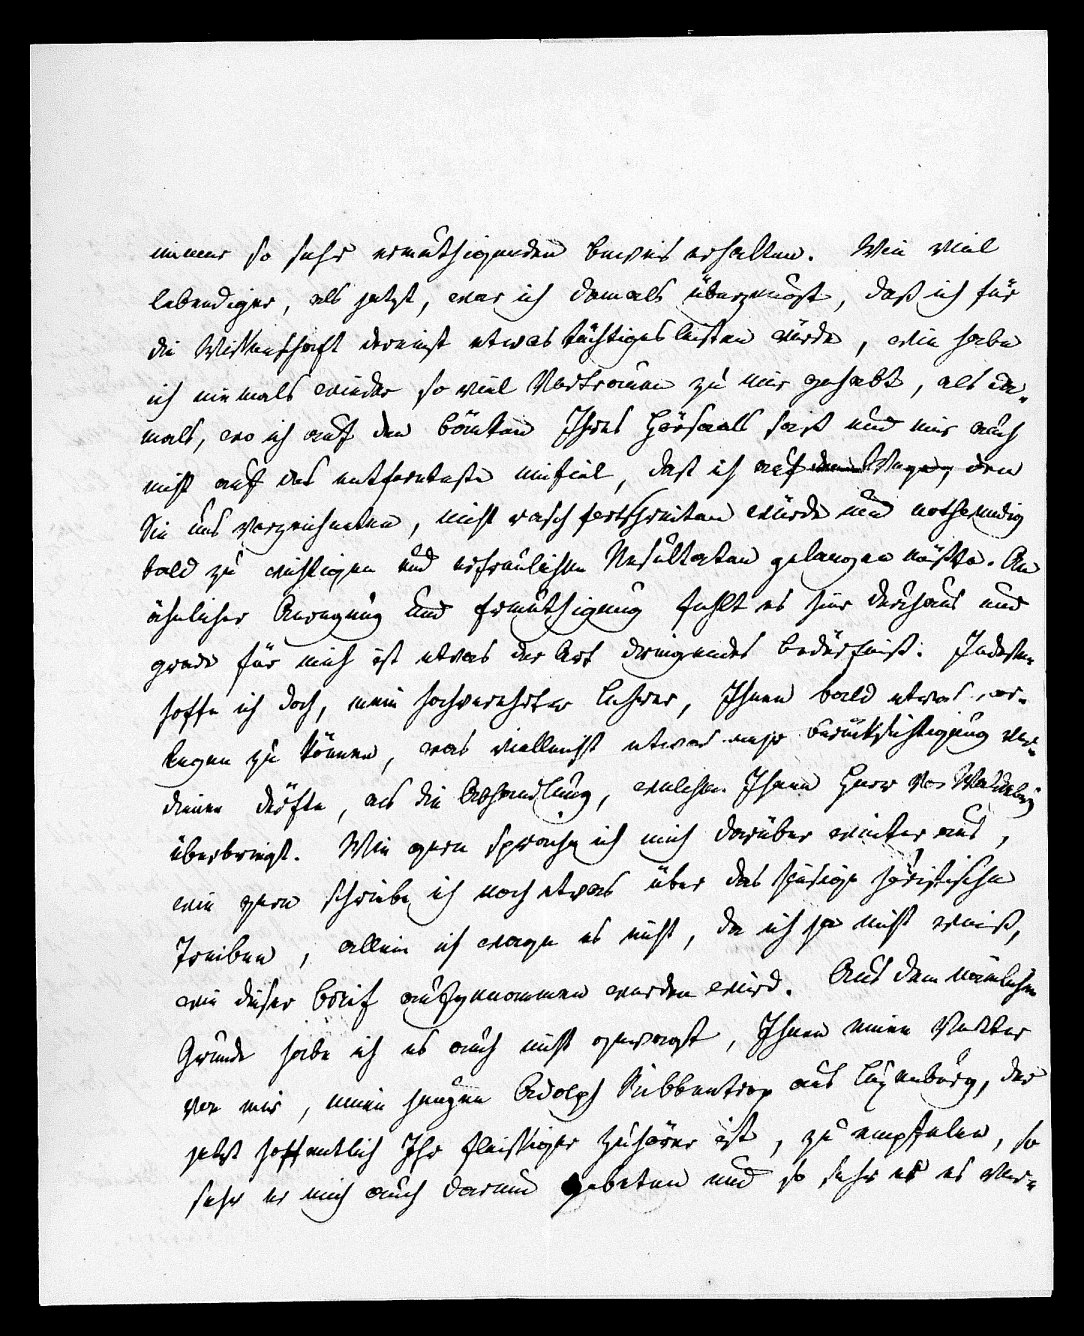 immer so sehr ermuthigenden Beweis erhalten. Wie viel
lebendiger, als jetzt, war ich damals überzeugt, daß ich für
die Wissenschaft dereinst etwas tüchtiges leisten würde, wie habe
ich niemals wieder so viel Vertrauen zu mir gehabt, als da-
mals, wo ich auf den Bänken Ihres Hörsaals saß und mir auch
nicht auf das entfernteste einfiel, daß ich auf dem Wege, den
Sie uns vorzeichneten, nicht rasch fortschreiten würde und nothwendig
bald zu wichtigen und erfreulichen Resultaten gelangen müßte. An
ähnlicher Anregung und Ermuthigung fehlt es hier durchaus und
grade für mich ist etwas der Art dringendes Bedürfniß. Indessen
hoffe ich doch, mein hochverehrter Lehrer, Ihnen bald etwas vor-
legen zu können, was vielleicht etwas mehr Berücksichtigung ver-
dienen dürfte, als die Abhandlung, welche Ihnen Herr
überbringt. Wie gern spräche ich mich darüber weiter aus,
wie gern schriebe ich noch etwas über das hiesige juristische
Treiben, allein ich wage es nicht, da ich ja nicht weiß,
wie dieser Brief aufgenommen werden wird. Aus dem nämlichen
Grunde habe ich es auch nicht gewagt, Ihnen meinen Vetter
von mir, meinen jungen Adolph Ribbentrop aus Lüneburg, der
jetzt hoffentlich Ihr fleißiger Zuhörer ist, zu empfehlen, so
sehr er mich auch darum gebeten und so sehr er es ver-